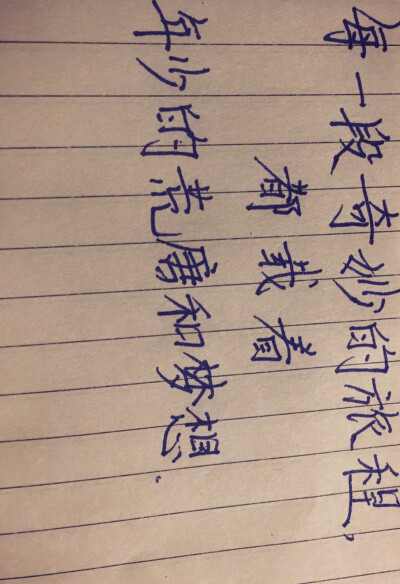 每一段奇妙的旅程,
都载着
年少的荒唐和梦想.